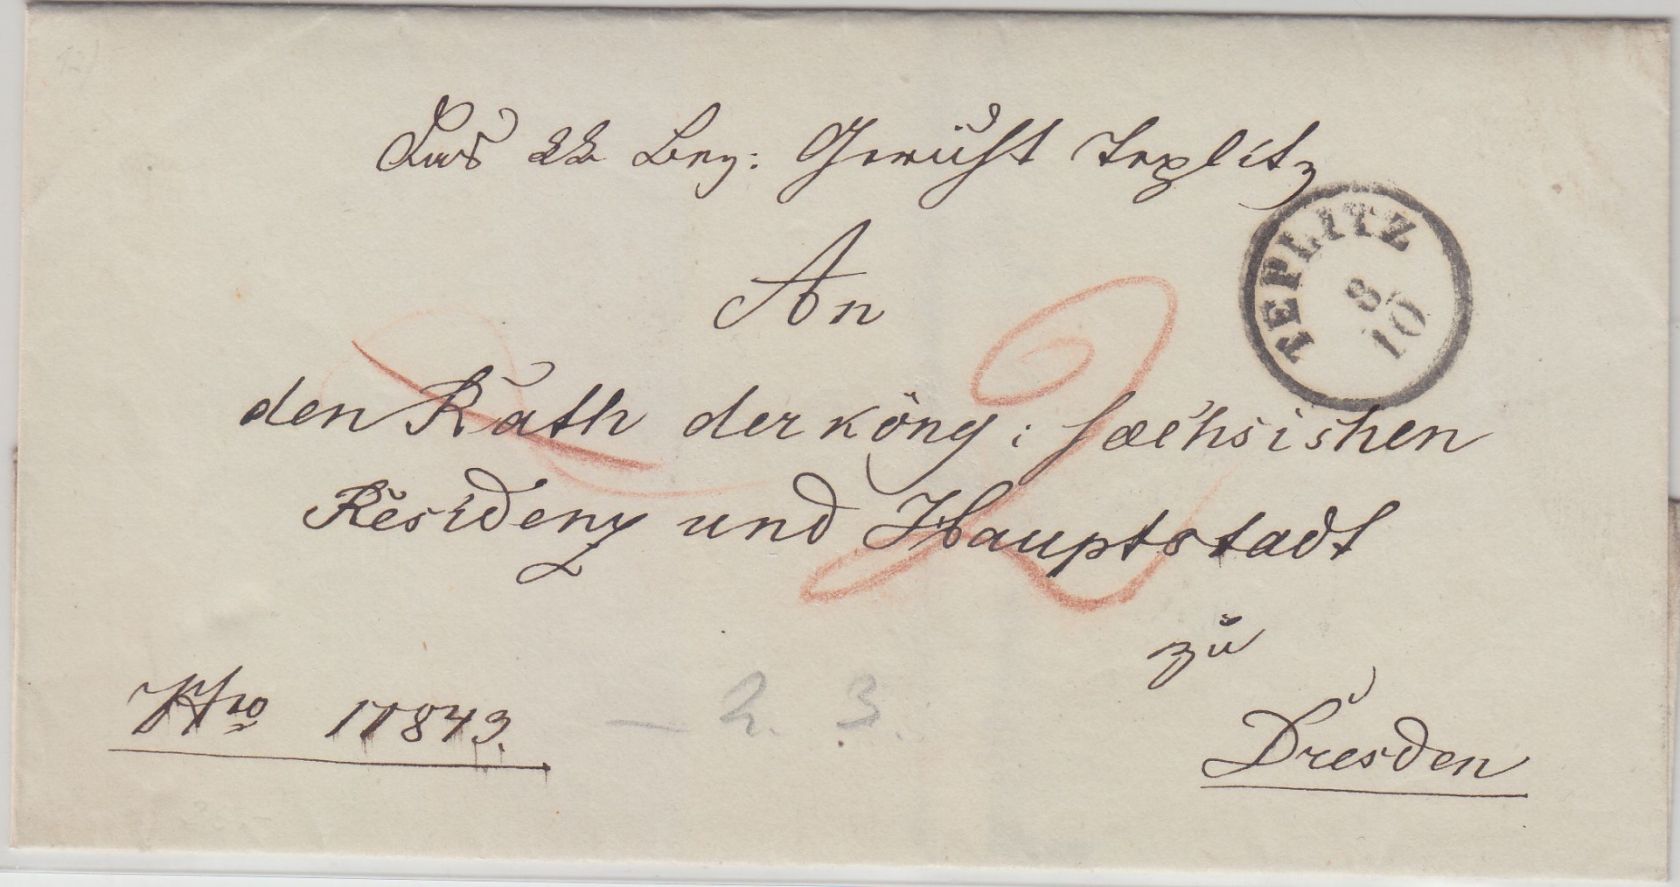 Das k k Bez: Gericht Teplitz
TEPLITZ
8
10
An
den Rath der köng: saechsishen
Residenz und Hauptstadt
zu
Dresden
Nro 11843.
2
— 2. 3.